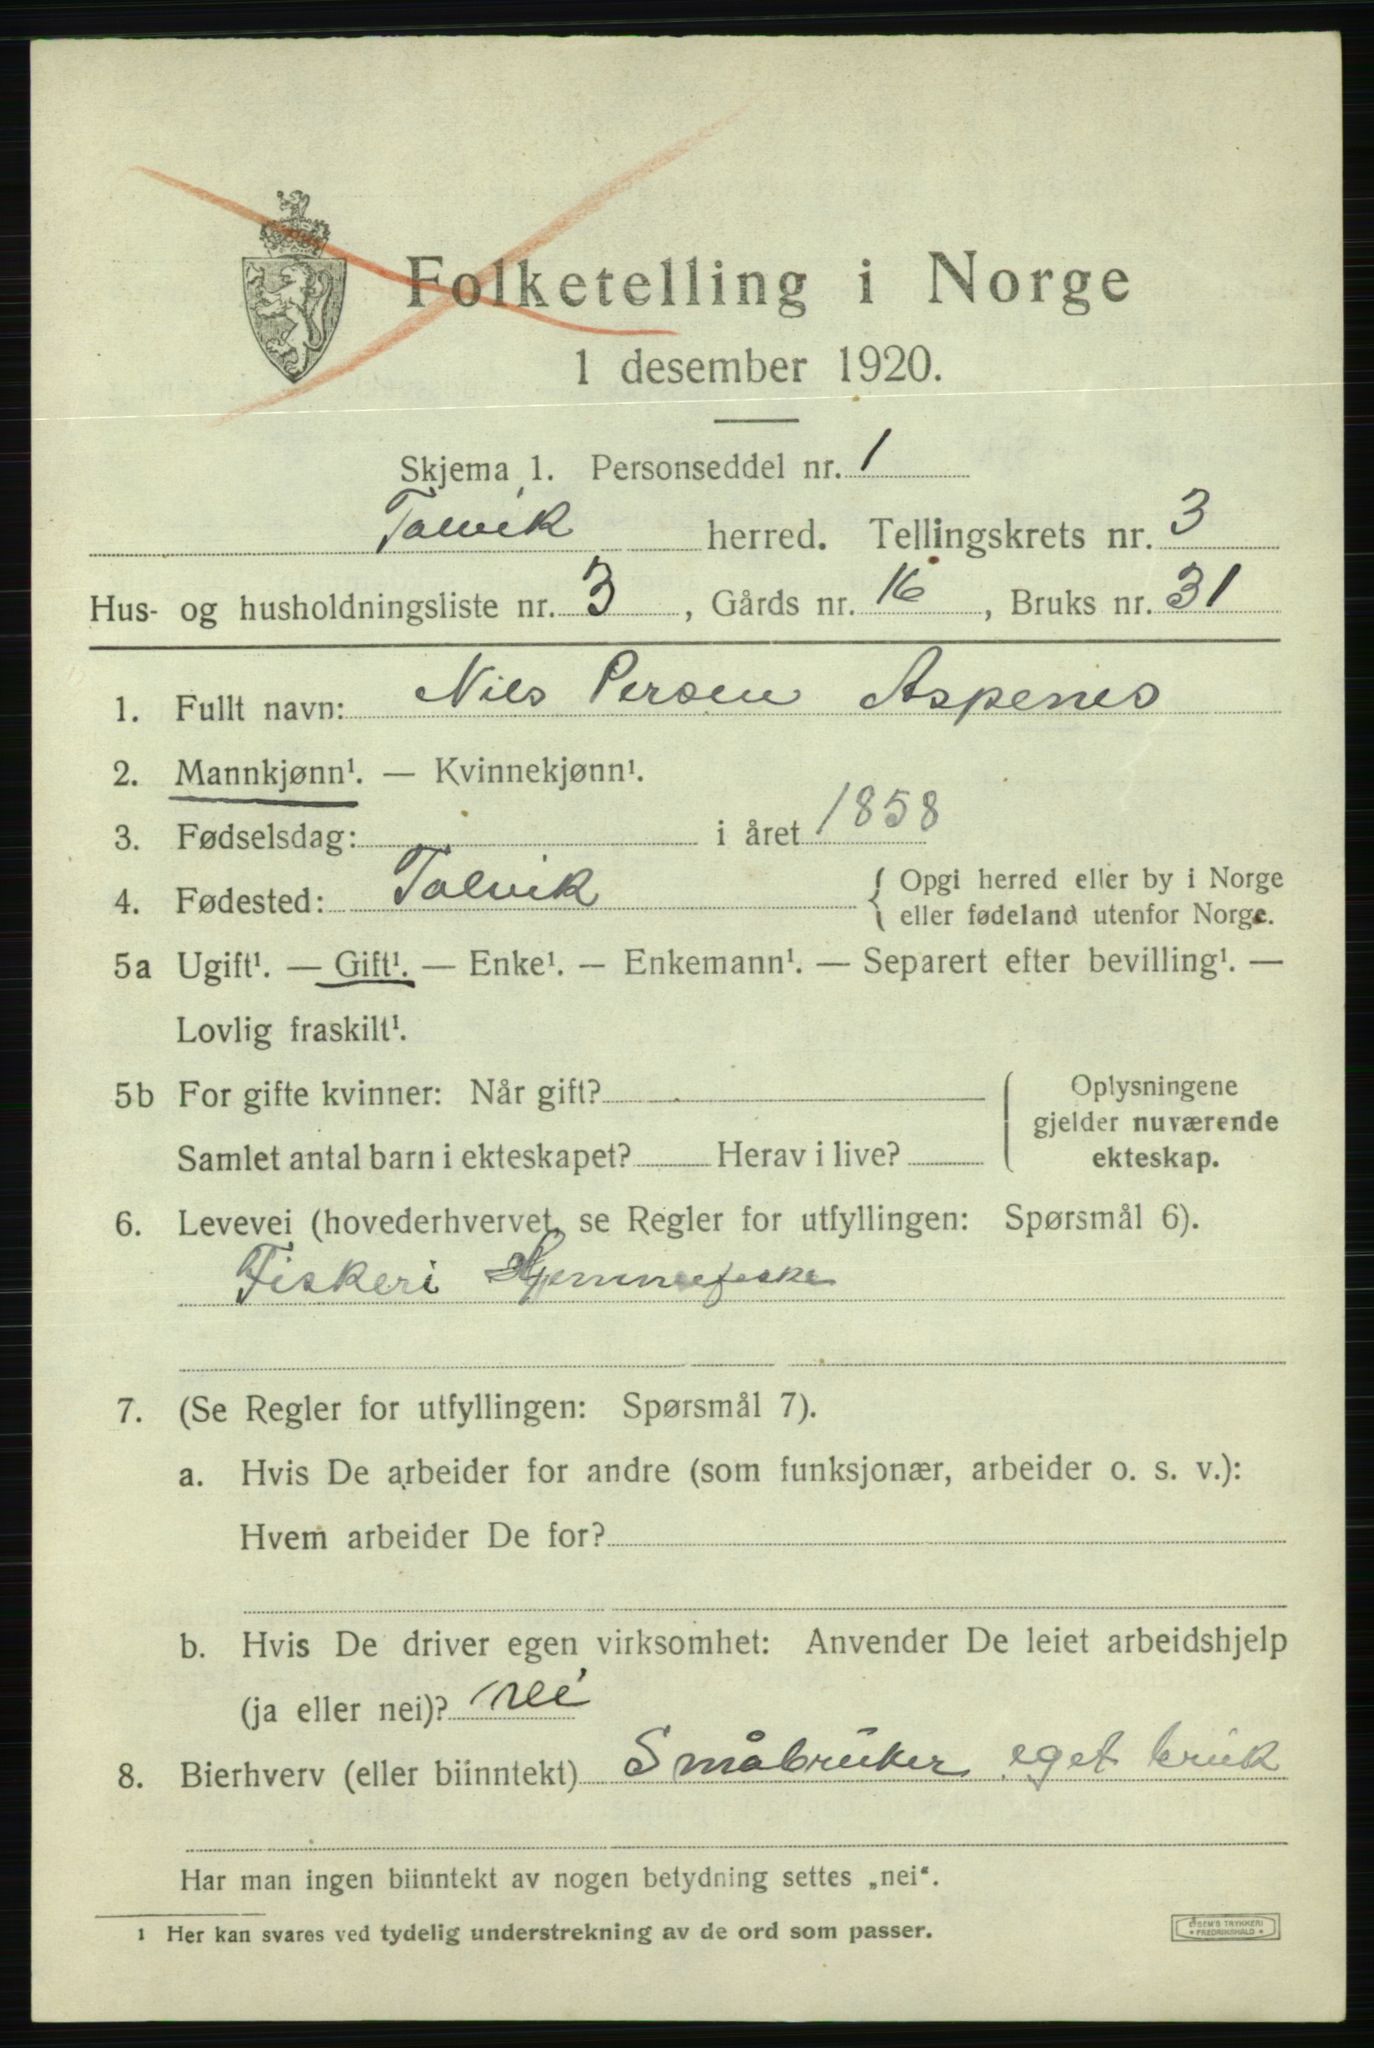 Folketelling i Norge
1 desember 1920.
Skjema 1. Personseddel nr. 1
Talvik herred. Tellingskrets nr. 3
Hus- og husholdningsliste nr. 3, Gårds nr. 16, Bruks nr. 31
1. Fullt navn: Nils Persen Aspenes
2. Mannkjønn¹. — Kvinnekjønn¹.
3. Fødselsdag: i året 1858
4. Fødested: Talvik { Opgi herred eller by i Norge
eller fødeland utenfor Norge.
5a Ugift¹. — Gift¹. — Enke¹. — Enkemann¹. — Separert efter bevilling¹. —
Lovlig fraskilt¹.
5b For gifte kvinner: Når gift?
Samlet antal barn i ekteskapet? Herav i live?
Oplysningene
gjelder nuværende
ekteskap.
6. Levevei (hovederhvervet, se Regler for utfyllingen: Spørsmål 6).
Fiskeri Hjemmefiske
7. (Se Regler for utfyllingen: Spørsmål 7).
a. Hvis De arbeider for andre (som funksjonær, arbeider o. s. v.):
Hvem arbeider De for?
b. Hvis De driver egen virksomhet: Anvender De leiet arbeidshjelp
(ja eller nei)? nei
8. Bierhverv (eller biinntekt) Småbruker eget bruk
Har man ingen biinntekt av nogen betydning settes „nei“.
¹ Her kan svares ved tydelig understrekning av de ord som passer.
E. SEM'S TRYKKERI
* FREDRIKSHALD *